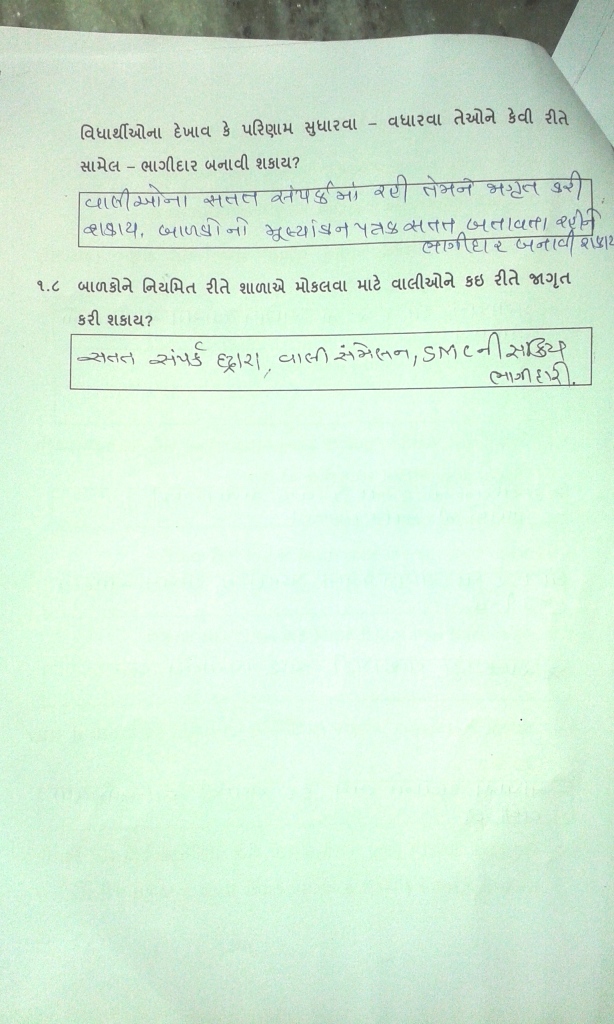 વિદ્યાર્થીઓના દેખાવ કે પરિણામ સુધારવા – વધારવા તેઓને કેવી રીતે
સામેલ – ભાગીદાર બનાવી શકાય?
વાલીઓના સતત સંપર્કમાં રહી તેમને જાગૃત કરી
શકાય. બાળકોનાં મૂલ્યાંકન પત્રક સતત બતાવતા રહીને
ભાગીદાર બનાવી શકાય
૧.૮ બાળકોને નિયમિત રીતે શાળાએ મોકલવા માટે વાલીઓને કઇ રીતે જાગૃત
કરી શકાય?
સતત સંપર્ક દ્વારા, વાલી સંમેલન, SMC ની સક્રિય
ભાગીદારી.